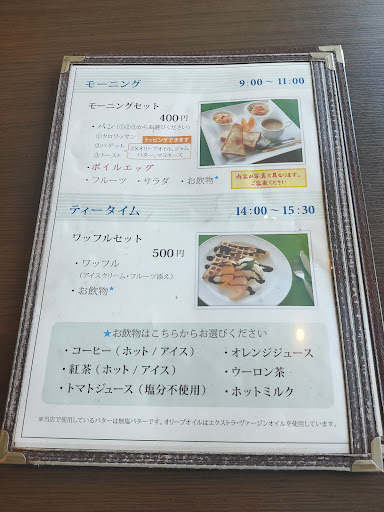 モーニング 9:00〜11:00
モーニングセット
400円
・パン(①②③からお選びください)
①クロワッサン
②バゲット
③トースト
トッピングできます
EXオリーブオイル、ジャム
バター、マヨネーズ
・ボイルエッグ
・フルーツ ・サラダ ・お飲物★
内容が写真と異なります。
ご容赦ください
ティータイム 14:00〜15:30
ワッフルセット
500円
・ワッフル
(アイスクリーム・フルーツ添え)
・お飲物★
★お飲物はこちらからお選びください
・コーヒー(ホット/アイス) ・オレンジジュース
・紅茶(ホット/アイス) ・ウーロン茶
・トマトジュース(塩分不使用) ・ホットミルク
※当店で使用しているバターは無塩バターです。オリーブオイルはエクストラ・ヴァージンオイルを使用しています。